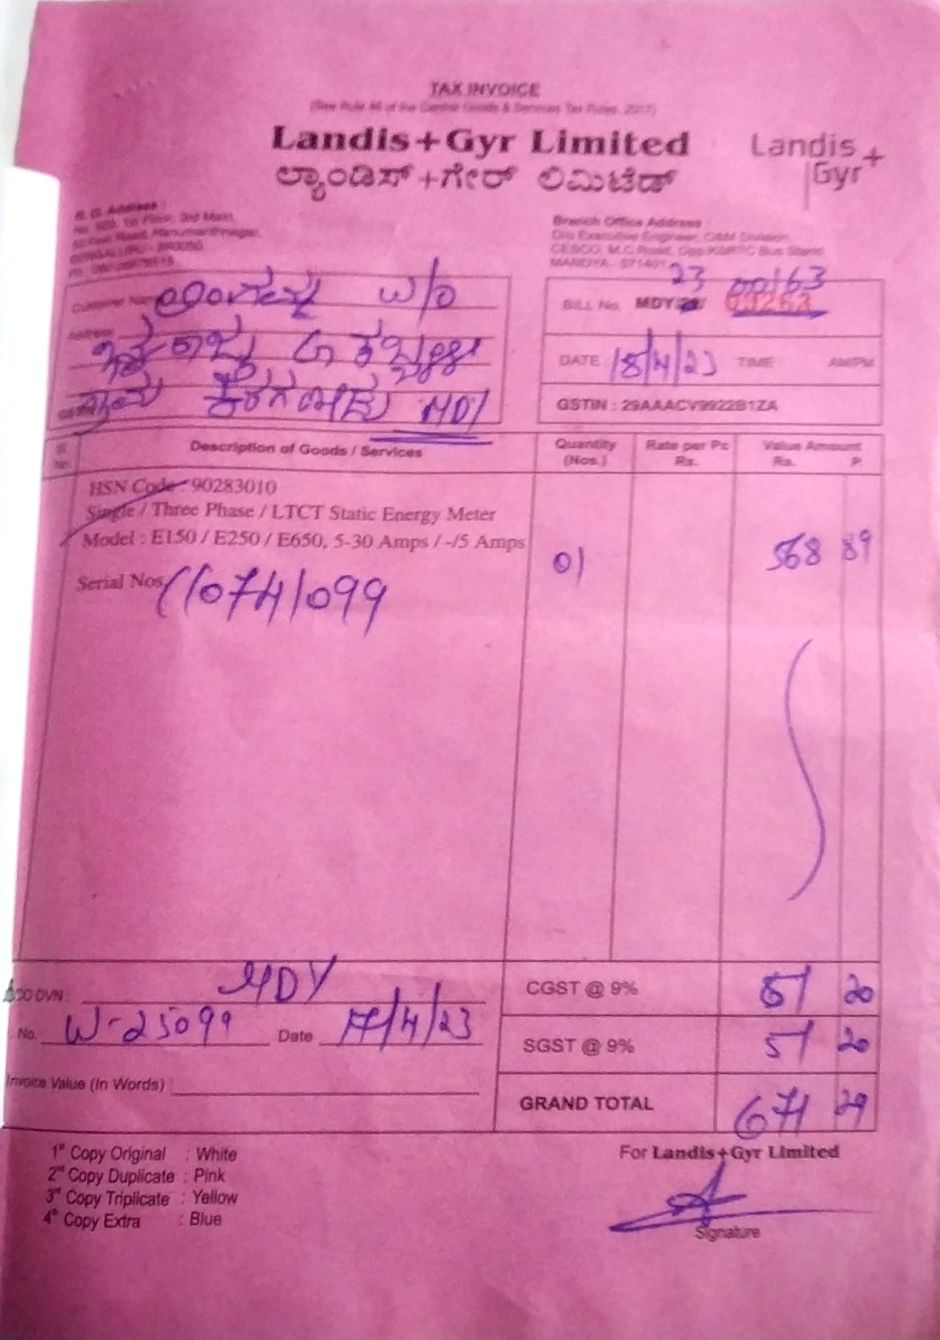 TAX INVOICE
(See Rule 46 of the Central Goods & Services Tax Rules, 2017)
Landis+Gyr Limited
ಲ್ಯಾಂಡಿಸ್+ಗೇರ್ ಲಿಮಿಟೆಡ್
Landis
Gyr+
R. O. Address :
Branch Office Address :
O/o Executive Engineer, O&M Division,
CESCO, M.C. Road, Opp. KSRTC Bus Stand,
MANDYA - 571401
Customer Name
W/o
Address
MDY
BILL No. MDY 23 00163
DATE 18/4/23 TIME AM/PM
GSTIN : 29AAACV9922B1ZA
Sl. No.
Description of Goods / Services
Quantity (Nos.)
Rate per Pc Rs.
Value Amount Rs. P.
HSN Code - 90283010
Single / Three Phase / LTCT Static Energy Meter
Model : E150 / E250 / E650, 5-30 Amps / -/5 Amps
01
568 89
Serial Nos. 110741099
DVN : MDY
No. W-25099 Date 17/4/23
Invoice Value (In Words)
CGST @ 9% 51 20
SGST @ 9% 51 20
GRAND TOTAL 671 29
1st Copy Original : White
2nd Copy Duplicate : Pink
3rd Copy Triplicate : Yellow
4th Copy Extra : Blue
For Landis+Gyr Limited
Signature